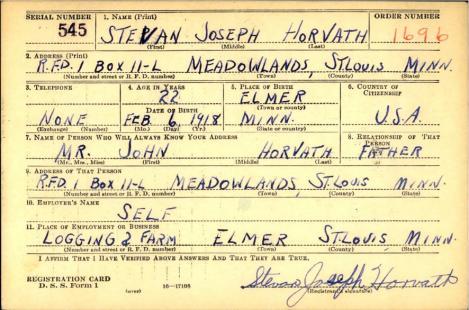 SERIAL NUMBER 1. NAME (Print) ORDER NUMBER
545 STEVAN JOSEPH HORVATH 1696
(First) (Middle) (Last)
2. ADDRESS (Print)
R.F.D. 1 BOX 11-L MEADOWLANDS, ST LOUIS MINN.
(Number and street or R. F. D. number) (Town) (County) (State)
3. TELEPHONE 4. AGE IN YEARS 5. PLACE OF BIRTH 6. COUNTRY OF CITIZENSHIP
22 ELMER
DATE OF BIRTH (Town or county)
NONE FEB. 6, 1918 MINN. U.S.A.
(Exchange) (Number) (Mo.) (Day) (Yr.) (State or country)
7. NAME OF PERSON WHO WILL ALWAYS KNOW YOUR ADDRESS 8. RELATIONSHIP OF THAT PERSON
MR. JOHN HORVATH FATHER
(Mr., Mrs., Miss) (First) (Middle) (Last)
9. ADDRESS OF THAT PERSON
R.F.D. 1 BOX 11-L MEADOWLANDS ST. LOUIS MINN.
(Number and street or R. F. D. number) (Town) (County) (State)
10. EMPLOYER'S NAME
SELF
11. PLACE OF EMPLOYMENT OR BUSINESS
LOGGING & FARM ELMER ST. LOUIS, MINN.
(Number and street or R. F. D. number) (Town) (County) (State)
I AFFIRM THAT I HAVE VERIFIED ABOVE ANSWERS AND THAT THEY ARE TRUE.
REGISTRATION CARD
D. S. S. Form 1 (over) 16—17105 Stevan Joseph Horvath
(Registrant's signature)